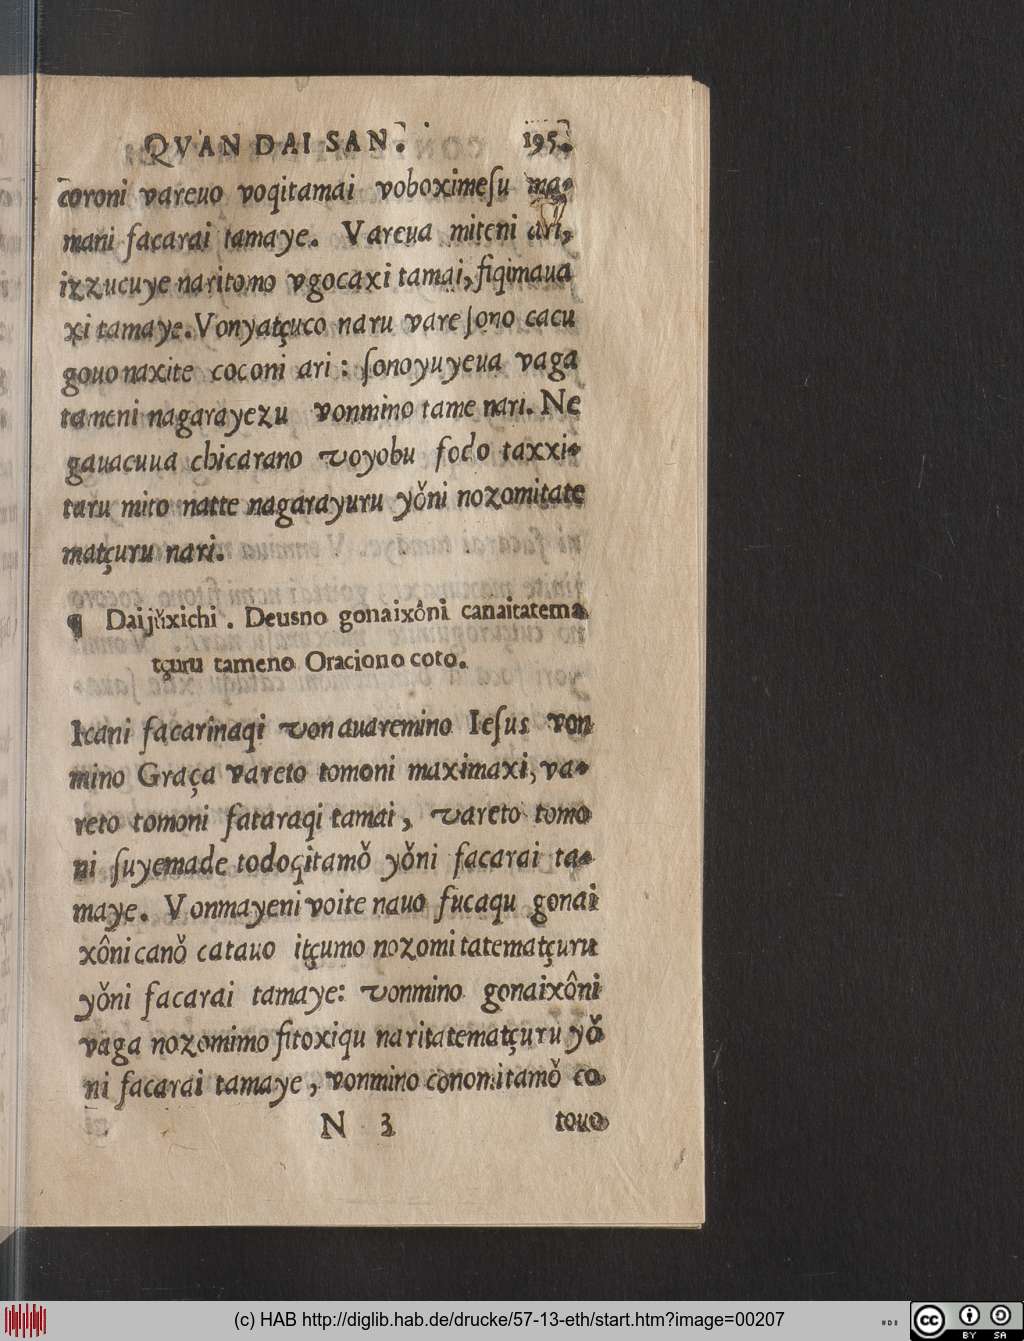 QVAN DAI SAN. 195.
coroni vareuo voqitamai voboximeſu ma-
mani facarai tamaye. Vareua miteni ari,
izzucuye naritomo vgocaxi tamai, fiqimaua
xi tamaye. Vonyatçuco naru vare ſono cacu
gouo naxite coconi ari : ſonoyuyeua vaga
tameni nagarayezu vonmino tame nari. Ne
gauacuua chicarano voyobu fodo taxxi-
taru mito natte nagarayuru yǒni nozomitate
matçuru nari.
¶ Daijǔxichi . Deusno gonaixôni canaitatema
tçuru tameno Oraciono coto.
Icani facarinaqi von auaremino Ieſus von
mino Graça vareto tomoni maximaxi, va-
reto tomoni fataraqi tamai, vareto tomo
ni ſuyemade todoqitamǒ yǒni facarai ta-
maye. Vonmayeni voite nauo fucaqu gonai
xôni canǒ catauo itçumo nozomi tatematçuru
yǒni facarai tamaye: vonmino gonaixôni
vaga nozomimo fitoxiqu naritatematçuru yǒ
ni facarai tamaye, vonmino conomitamǒ co
N 3 touo
(c) HAB http://diglib.hab.de/drucke/57-13-eth/start.htm?image=00207
cc BY SA